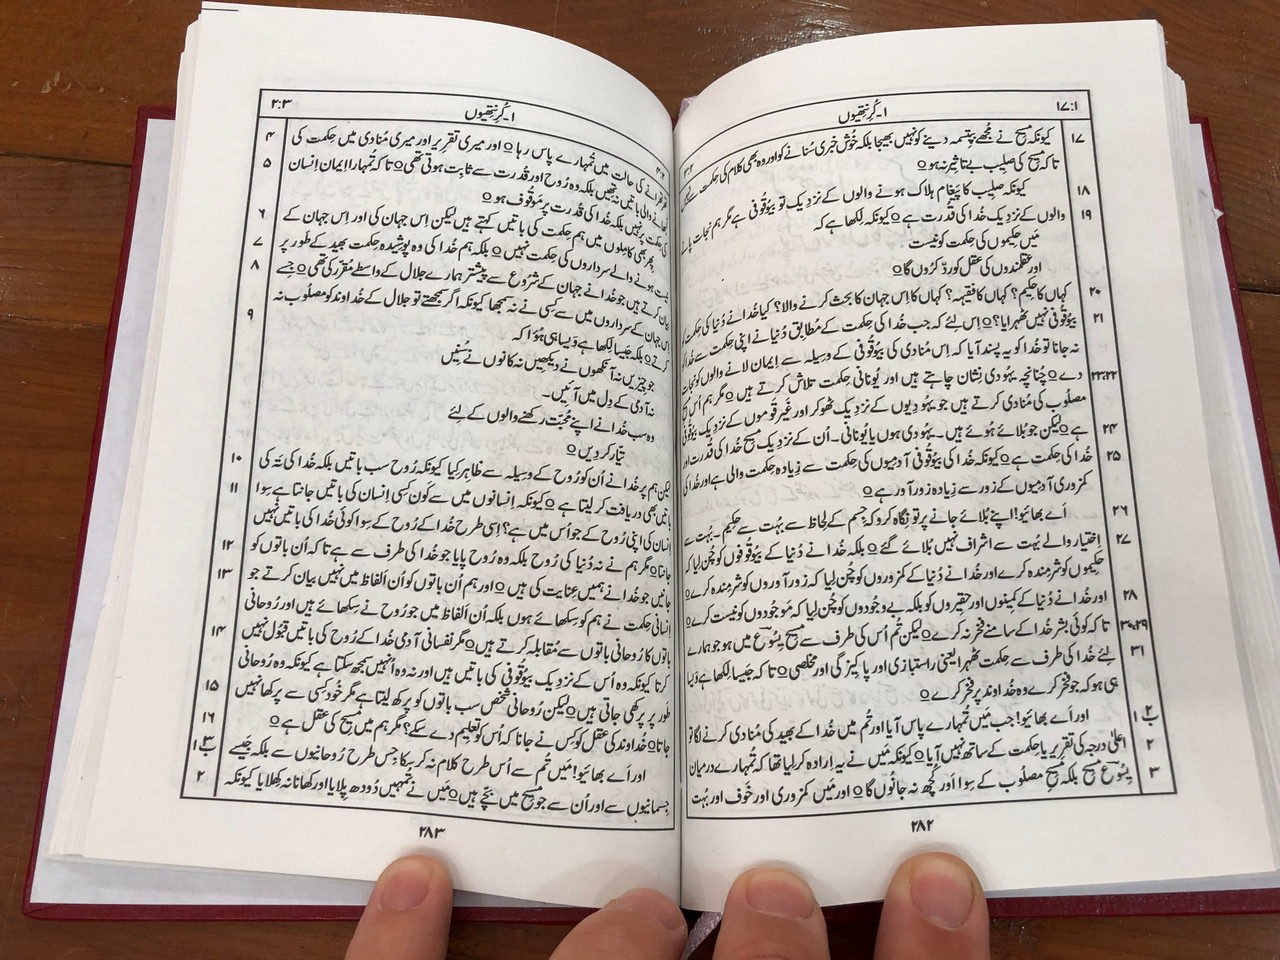 ۱۷:۱
۱۔کُرِنتھِیوں
۲:۲
۱۷ کیونکہ مسِیح نے مُجھے بپتِسمہ دینے کو نہیں بھیجا بلکہ خُوشخبری سُنانے کو اور وہ بھی کلام کی حِکمت سے نہیں
تاکہ مسِیح کی صلِیب بے تاثِیر نہ ہو ○
۱۸ کیونکہ صلِیب کا پَیغام ہلاک ہونے والوں کے نزدِیک تو بیوُقُوفی ہے مگر ہم نجات پانے
۱۹ والوں کے نزدِیک خُدا کی قُدرت ہے ○ کیونکہ لِکھا ہے کہ
مَیں حکِیموں کی حِکمت کو نیست
اور عقلمندوں کی عقل کو ردّ کرُوں گا ○
۲۰ کہاں کا حکِیم؟ کہاں کا فقِیہہ؟ کہاں کا اِس جہان کا بحث کرنے والا؟ کیا خُدا نے دُنیا کی حِکمت کو
۲۱ بیوُقُوفی نہیں ٹھہرایا؟ ○ اِس لِئے کہ جب خُدا کی حِکمت کے مُطابِق دُنیا نے اپنی حِکمت سے خُدا کو
نہ جانا تو خُدا کو یہ پسند آیا کہ اِس مُنادی کی بیوُقُوفی کے وسِیلہ سے اِیمان لانے والوں کو نجات
۲۲،۲۳ دے ○ چُنانچہ یہُودی نِشان چاہتے ہیں اور یُونانی حِکمت تلاش کرتے ہیں ○ مگر ہم اُس مسِیح
مصلُوب کی مُنادی کرتے ہیں جو یہُودِیوں کے نزدِیک ٹھوکر اور غَیر قَوموں کے نزدِیک بیوُقُوفی
۲۴ ہے ○ لیکن جو بُلائے ہُوئے ہیں۔ یہُودی ہوں یا یُونانی۔ اُن کے نزدِیک مسِیح خُدا کی قُدرت اور
۲۵ خُدا کی حِکمت ہے ○ کیونکہ خُدا کی بیوُقُوفی آدمِیوں کی حِکمت سے زِیادہ حِکمت والی ہے اور خُدا کی
کمزوری آدمِیوں کے زور سے زِیادہ زورآور ہے ○
۲۶ اَے بھائیو! اپنے بُلائے جانے پر تو نِگاہ کرو کہ جِسم کے لِحاظ سے بہُت سے حکِیم۔ بہُت سے
۲۷ اِختیار والے بہُت سے اشراف نہیں بُلائے گئے ○ بلکہ خُدا نے دُنیا کے بیوُقُوفوں کو چُن لِیا کہ
حکِیموں کو شرمِندہ کرے اور خُدا نے دُنیا کے کمزوروں کو چُن لِیا کہ زورآوروں کو شرمِندہ کرے ○
۲۸ اور خُدا نے دُنیا کے کمِینوں اور حقِیروں کو بلکہ بے وجُودوں کو چُن لِیا کہ مَوجُودوں کو نیست کرے ○
۲۹،۳۰ تاکہ کوئی بشر خُدا کے سامنے فخر نہ کرے ○ لیکن تُم اُس کی طرف سے مسِیح یِسُوعؔ میں ہو جو ہمارے
۳۱ لِئے خُدا کی طرف سے حِکمت ٹھہرا یعنی راستبازی اور پاکِیزگی اور مخلصی ○ تاکہ جَیسا لِکھا ہے وَیسا
ہی ہو کہ جو فخر کرے وہ خُداوند پر فخر کرے ○
۲ب۱ اور اَے بھائیو! جب مَیں تُمہارے پاس آیا اور تُم میں خُدا کے بھید کی مُنادی کرنے لگا تو
۲ اعلیٰ درجہ کی تقرِیر یا حِکمت کے ساتھ نہیں آیا ○ کیونکہ مَیں نے یہ اِرادہ کر لِیا تھا کہ تُمہارے درمیان
۳ یِسُوعؔ مسِیح بلکہ مسِیح مصلُوب کے سِوا اَور کُچھ نہ جانُوں گا ○ اور مَیں کمزوری اور خَوف اور بہُت
۲۸۲
۱۔کُرِنتھِیوں
۲:۳
۴ تھرتھرانے کی حالت میں تُمہارے پاس رہا ○ اور میری تقرِیر اور میری مُنادی میں حِکمت کی
۵ لُبھانے والی باتیں نہ تھیں بلکہ وہ رُوح اور قُدرت سے ثابِت ہوتی تھی ○ تاکہ تُمہارا اِیمان اِنسان
کی حِکمت پر نہیں بلکہ خُدا کی قُدرت پر مَوقُوف ہو ○
۶ پِھر بھی کامِلوں میں ہم حِکمت کی باتیں کہتے ہیں لیکن اِس جہان کی اور اِس جہان کے
۷ نیست ہونے والے سرداروں کی حِکمت نہیں ○ بلکہ ہم خُدا کی وہ پوشِیدہ حِکمت بھید کے طَور پر
۸ بیان کرتے ہیں جو خُدا نے جہان کے شرُوع سے پیشتر ہمارے جلال کے واسطے مُقرّر کی تھی ○ جِسے
اِس جہان کے سرداروں میں سے کِسی نے نہ سمجھا کیونکہ اگر سمجھتے تو جلال کے خُداوند کو مصلُوب نہ
۹ کرتے ○ بلکہ جَیسا لِکھا ہے وَیسا ہی ہُؤا کہ
جو چِیزیں نہ آنکھوں نے دیکھیں نہ کانوں نے سُنیں
نہ آدمی کے دِل میں آئیں۔
وہ سب خُدا نے اپنے مُحبّت رکھنے والوں کے لِئے
تیّار کر دِیں ○
۱۰ لیکن ہم پر خُدا نے اُن کو رُوح کے وسِیلہ سے ظاہِر کِیا کیونکہ رُوح سب باتیں بلکہ خُدا کی تَہ کی
۱۱ باتیں بھی دریافت کر لیتا ہے ○ کیونکہ اِنسانوں میں سے کَون کِسی اِنسان کی باتیں جانتا ہے سِوا
اِنسان کی اپنی رُوح کے جو اُس میں ہے؟ اِسی طرح خُدا کے رُوح کے سِوا کوئی خُدا کی باتیں نہیں
۱۲ جانتا ○ مگر ہم نے نہ دُنیا کی رُوح بلکہ وہ رُوح پایا جو خُدا کی طرف سے ہے تاکہ اُن باتوں کو
۱۳ جانیں جو خُدا نے ہمیں عِنایت کی ہیں ○ اور ہم اُن باتوں کو اُن الفاظ میں نہیں بیان کرتے جو
اِنسانی حِکمت نے ہم کو سِکھائے ہوں بلکہ اُن الفاظ میں جو رُوح نے سِکھائے ہیں اور رُوحانی
۱۴ باتوں کا رُوحانی باتوں سے مُقابلہ کرتے ہیں ○ مگر نفسانی آدمی خُدا کے رُوح کی باتیں قبُول نہیں
کرتا کیونکہ وہ اُس کے نزدِیک بیوُقُوفی کی باتیں ہیں اور نہ وہ اُنہیں سمجھ سکتا ہے کیونکہ وہ رُوحانی
۱۵ طَور پر پرکھی جاتی ہیں ○ لیکن رُوحانی شخص سب باتوں کو پرکھ لیتا ہے مگر خُود کِسی سے پرکھا نہیں
۱۶ جاتا ○ خُداوند کی عقل کو کِس نے جانا کہ اُس کو تعلِیم دے سکے؟ مگر ہم میں مسِیح کی عقل ہے ○
۳ب۱ اور اَے بھائیو! مَیں تُم سے اُس طرح کلام نہ کر سکا جِس طرح رُوحانِیوں سے بلکہ جَیسے
۲ جِسمانِیوں سے اور اُن سے جو مسِیح میں بچّے ہیں ○ مَیں نے تُمہیں دُودھ پِلایا اور کھانا نہ کھلایا کیونکہ
۲۸۳